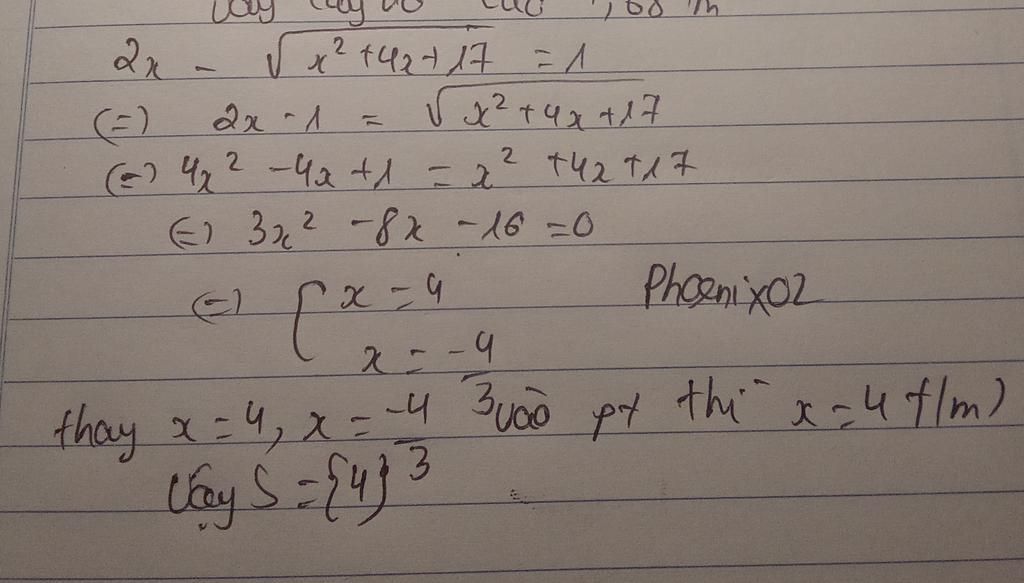 2x - √(x² + 4x + 17) = 1
(=) 2x - 1 = √(x² + 4x + 17)
(=) 4x² - 4x + 1 = x² + 4x + 17
(=) 3x² - 8x - 16 = 0
(=) [ x = 4
Phoenix02
x = -4/3
thay x = 4, x = -4/3 vào pt thì x = 4 t/m)
Vậy S = {4}